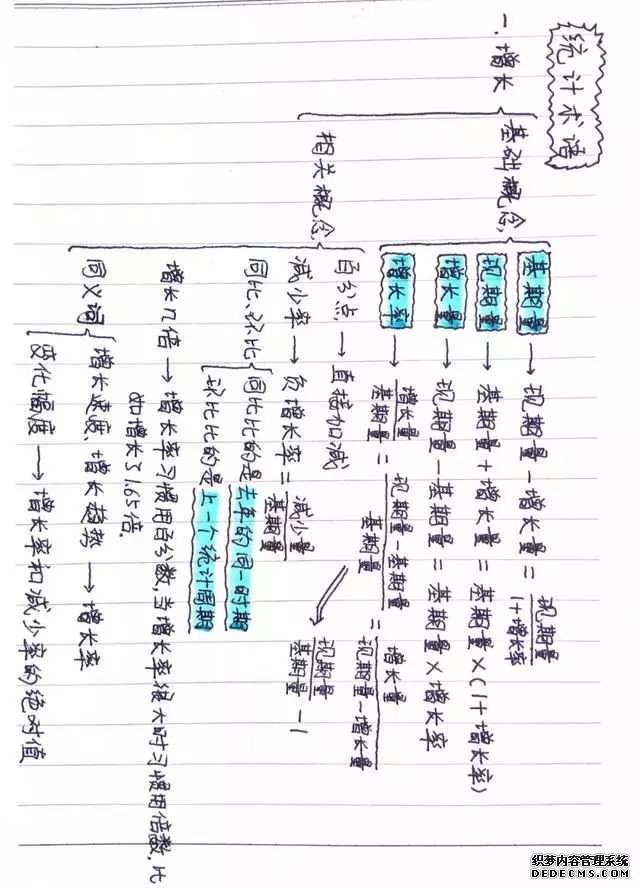 统计术语
一、增长
基础概念
基期量 → 现期量-增长量=现期量/1+增长率
现期量 → 基期量+增长量=基期量×(1+增长率)
增长量 → 现期量-基期量=基期量×增长率
增长率 → 增长量/基期量=现期量-基期量/基期量=增长量/现期量-增长量
⇒ 现期量/基期量-1
相关概念
百分点 → 直接加减
减少率 → 负增长率=减少量/基期量
同比、环比
同比比的是去年的同一时期
环比比的是上一个统计周期
增长几倍 → 增长率习惯用百分数,当增长率很大时习惯用倍数,比
如增长了1.65倍.
同义词
增长速度、增长趋势 → 增长率
变化幅度 → 增长率和减少率的绝对值
织梦内容管理系统
DEDECMS.COM